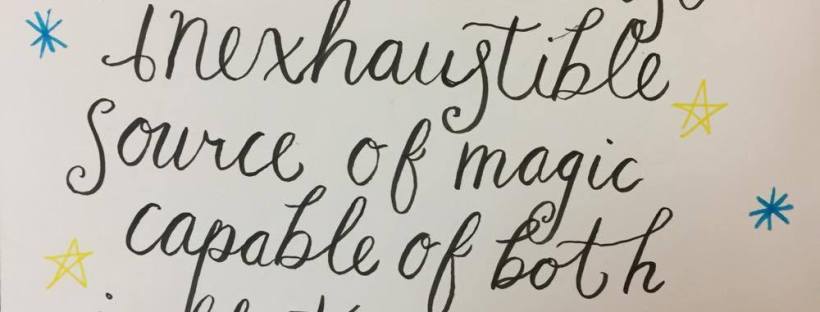 Inexhaustible
Source of magic
capable of both